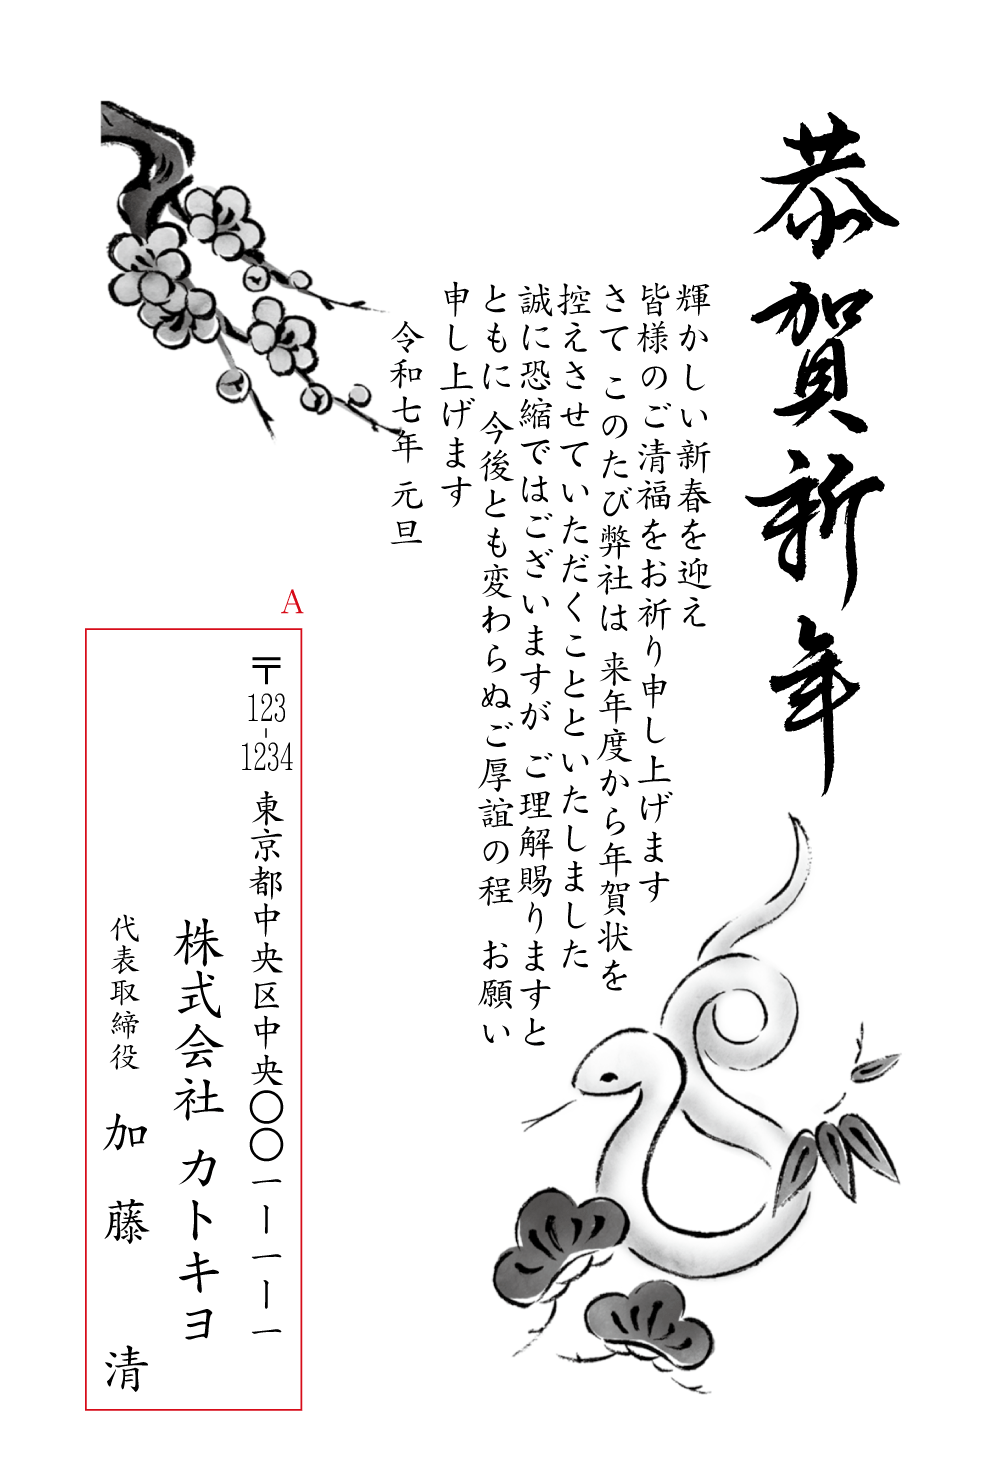 恭賀新年
輝かしい新春を迎え
皆様のご清福をお祈り申し上げます
さて このたび弊社は 来年度から年賀状を
控えさせていただくことといたしました
誠に恐縮ではございますが ご理解賜りますと
ともに 今後とも変わらぬご厚誼の程 お願い
申し上げます
令和七年 元旦
A
〒123-1234 東京都中央区中央〇〇一ー一ー一
株式会社 カトキヨ
代表取締役 加藤 清